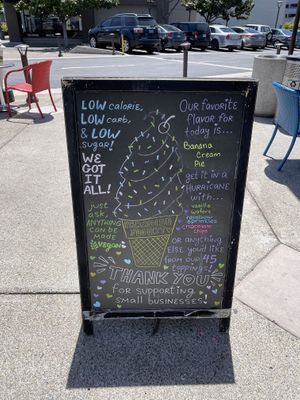 LOW calorie,
LOW carb,
& LOW
sugar!
WE
GOT
IT
ALL!
just
ask,
ANYTHING
can be
made
vegan
Our favorite
flavor for
today is...
Banana
Cream
Pie
get it in a
HURRICANE
with...
vanilla
wafers
rainbow
sprinkles
chocolate
chips
or anything
else you'd like
from our 45
toppings!
THANK YOU
for supporting
small businesses!